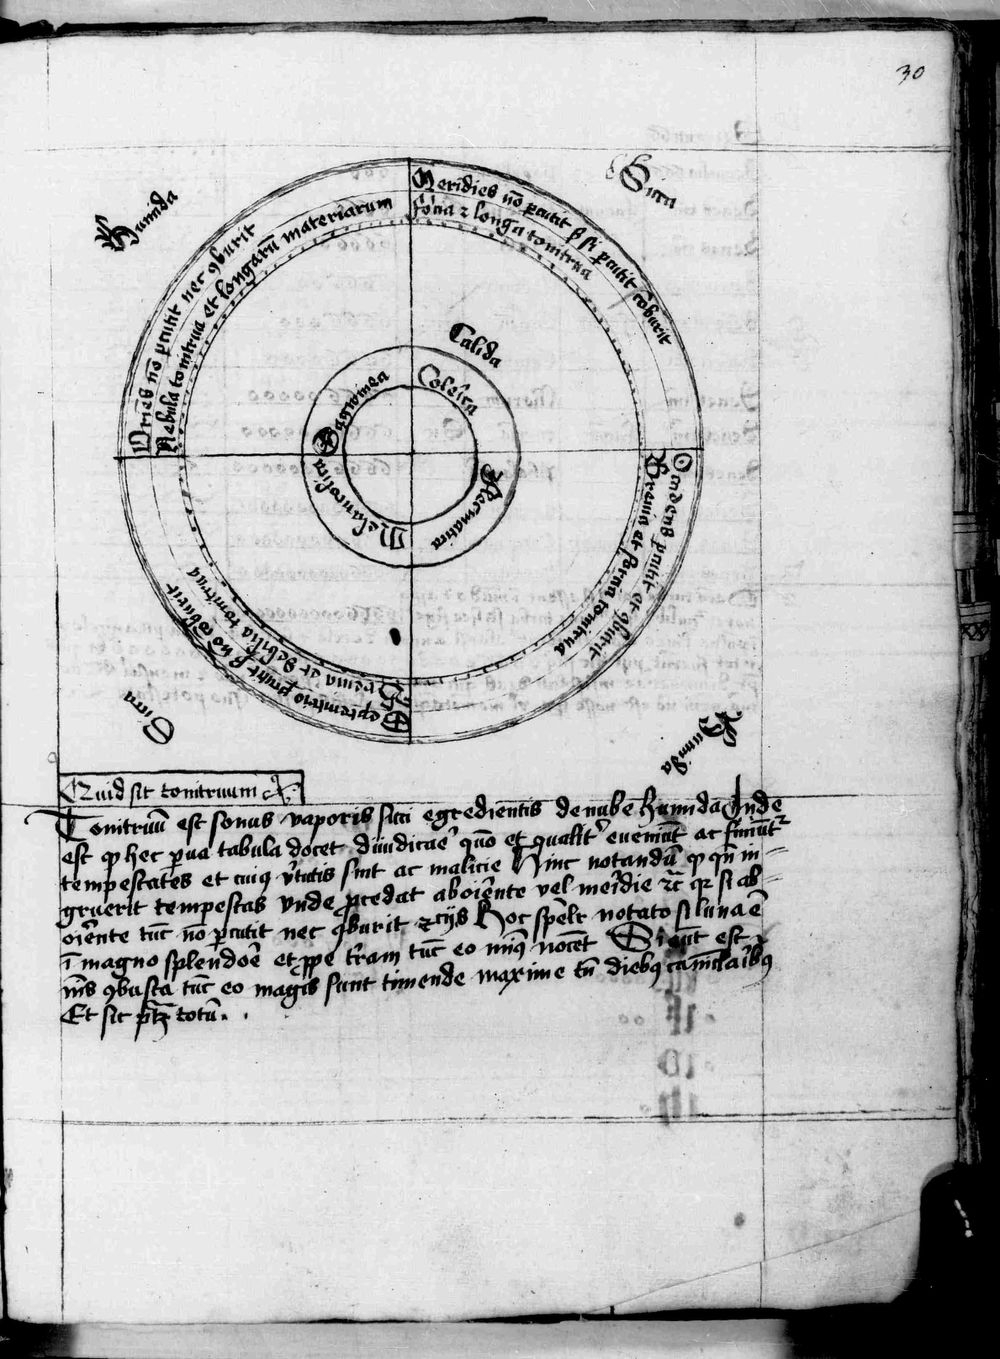 30
Humida
Sicca
Meridies nō ꝑcutit ß si ꝑcutit cōburit
forcia ⁊ longa tonitrua
Oriēs nō ꝑcutit nec ꝯburit
Nebula tonitrua et longarū materiarum
Calida
Colerica
Sagwinea
Melancolica
Flecmatica
Occidens ꝑcutit et ꝯburit
Brevia et forcia tonitrua
Septemtrio ꝑcutit ß nō cōburit
Brevia et debilia tonitrua
Sicca
Humida
Quid sit tonitruum
Tonitruū est sonus vaporis sicci egredientis de nube humida Unde
est ꝙ hec ꝑva tabula docet diiudicaē quō et qualitr̄ eveniūt ac finiūt᷑
tempestates et cuiꝯ v̄tutis sint ac malicie Hinc notandū ꝙ qn̄ in-
gruerit tempestas unde ꝓcedat ab oiēnte vel meīdie ⁊c̄ qꝛ si ab
oiēnte tūc nō ꝑcutit nec ꝯburit ⁊ Hoc spēlr notato si luna ē
ī magno splendoē et ꝓpe t̄ram tūc eo minꝯ nocēt Si est
ꝯbusta tūc eo magis sunt timende maxime tn̄ diebꝯ caniclaībꝯ
Et sic ptꝫ totū.